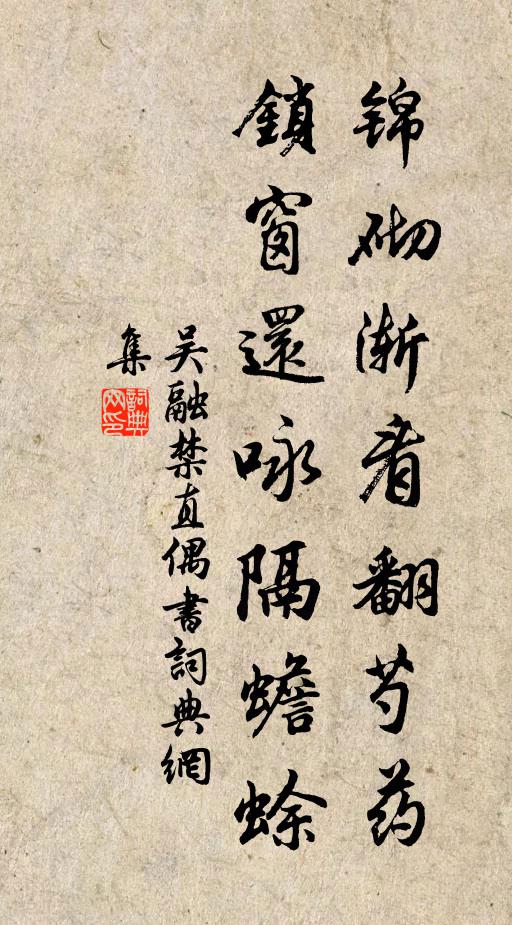 锦砌渐看翻芍药
鎖窗還咏隔蟾蜍
吴融禁直偶書詞典網
集
詞典
网印